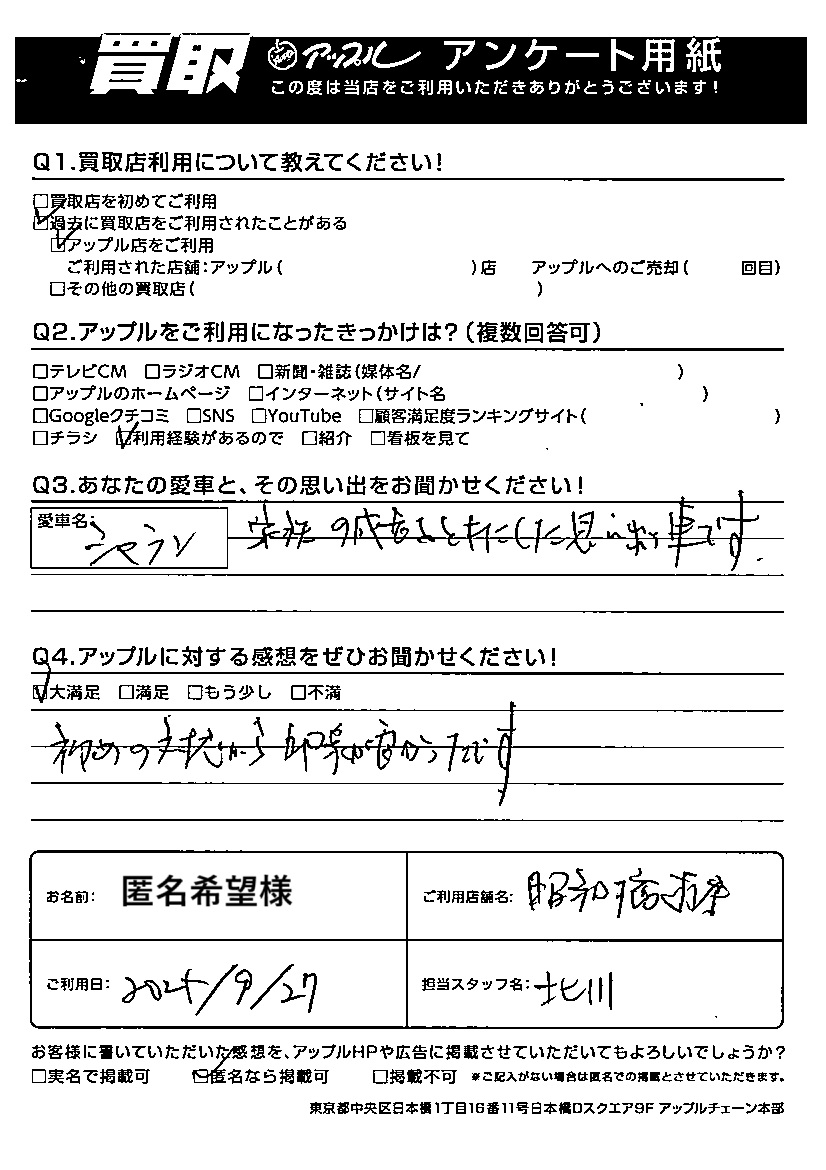 買取 アップル アンケート用紙
この度は当店をご利用いただきありがとうございます!
Q1.買取店利用について教えてください!
□買取店を初めてご利用
☑過去に買取店をご利用されたことがある
☑アップル店をご利用
ご利用された店舗:アップル( )店 アップルへのご売却( 回目)
□その他の買取店( )
Q2.アップルをご利用になったきっかけは?(複数回答可)
□テレビCM □ラジオCM □新聞・雑誌(媒体名/ )
□アップルのホームページ □インターネット(サイト名 )
□Googleクチコミ □SNS □YouTube □顧客満足度ランキングサイト( )
□チラシ ☑利用経験があるので □紹介 □看板を見て
Q3.あなたの愛車と、その思い出をお聞かせください!
愛車名: シャラン 家族の成長とともにした思い出の車です.
Q4.アップルに対する感想をぜひお聞かせください!
☑大満足 □満足 □もう少し □不満
初めの対応から印象が良かったです
お名前: 匿名希望様 ご利用店舗名: 昭和橋
ご利用日: 2025/9/27 担当スタッフ名: 北川
お客様に書いていただいた感想を、アップルHPや広告に掲載させていただいてもよろしいでしょうか?
□実名で掲載可 ☑匿名なら掲載可 □掲載不可 ※ご記入がない場合は匿名での掲載とさせていただきます。
東京都中央区日本橋1丁目16番11号日本橋Dスクエア9F アップルチェーン本部